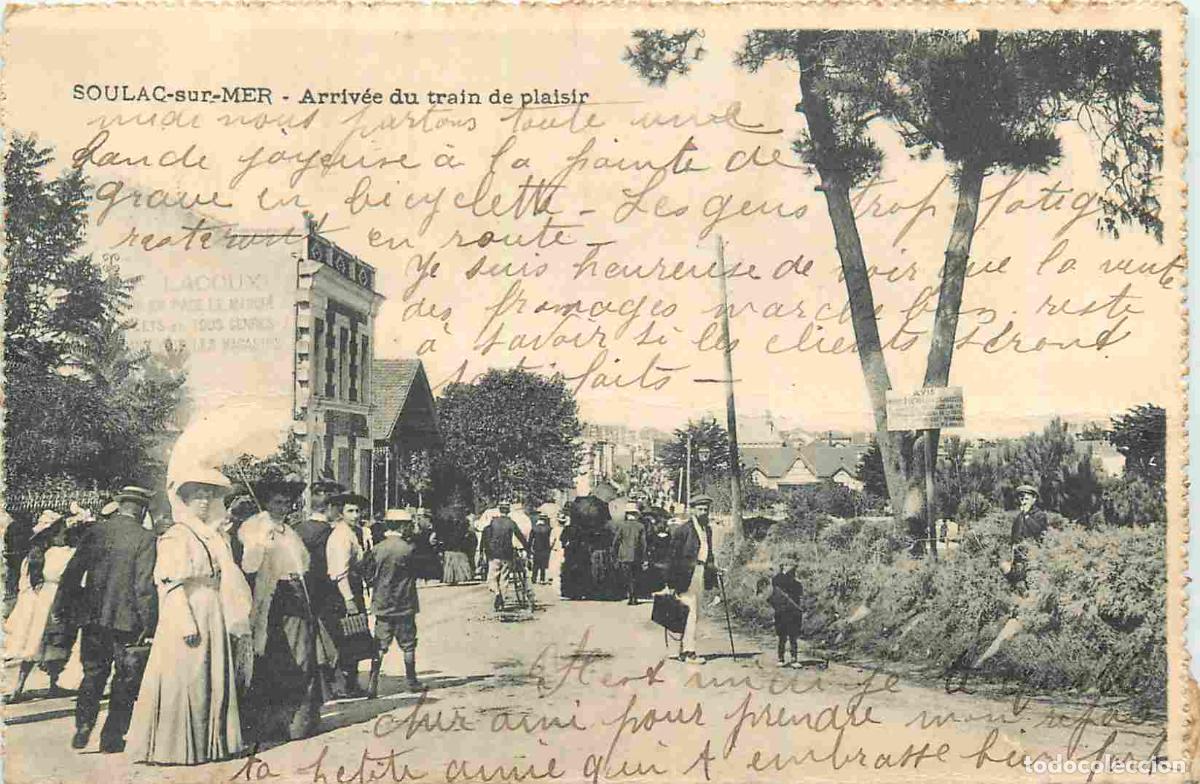 SOULAC-sur-MER - Arrivée du train de plaisir
midi nous partons toute une
bande joyeuse à la pointe de
grave en bicyclette - Les gens trop fatig
resteront en route -
Je suis heureuse de voir que la vente
des fromages marche bien. reste
à savoir si les clients seront
satisfaits -
LACOUX
EN FACE LE MARCHÉ
EN TOUS GENRES
LES MAGASINS
AVIS
il est midi je
cher ami pour prendre mon repas
ta petite amie qui t embrasse bien fort
todocoleccion